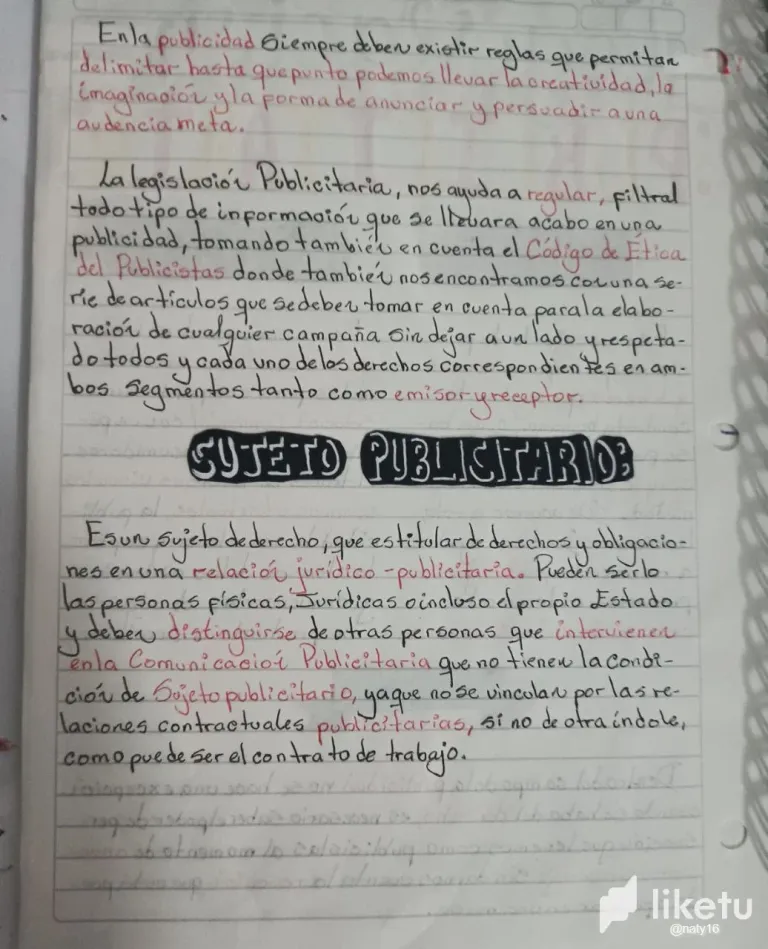 En la publicidad siempre deben existir reglas que permitan
delimitar hasta que punto podemos llevar la creatividad, la
imaginación y la forma de anunciar y persuadir a una
audencia meta.
La legislación Publicitaria, nos ayuda a regular, filtral
todo tipo de información que se llevara acabo en una
publicidad, tomando también en cuenta el Código de Ética
del Publicistas donde también nos encontramos con una se-
rie de artículos que se deben tomar en cuenta para la elabo-
ración de cualquier campaña sin dejar a un lado y respeta-
do todos y cada uno de los derechos correspondientes en am-
bos segmentos tanto como emisor y receptor.
SUJETO PUBLICITARIO:
Es un sujeto de derecho, que es titular de derechos y obligacio-
nes en una relación jurídico-publicitaria. Pueden serlo
las personas físicas, Jurídicas o incluso el propio Estado
y deben distinguirse de otras personas que intervienen
en la Comunicación Publicitaria que no tienen la condi-
ción de Sujeto publicitario, ya que no se vinculan por las re-
laciones contractuales publicitarias, si no de otra índole,
como puede ser el contrato de trabajo.
liketu
@naty16